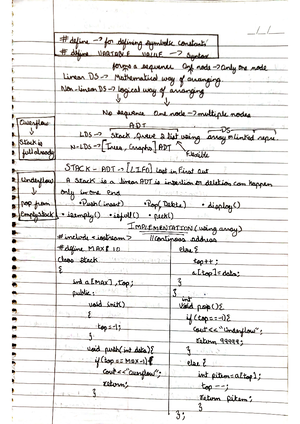 #define → for defining symbolic constants
#define VARIABLE VALUE → Syntax
forms a sequence One node → Only one node
Linear DS → Mathematical way of arranging
Non-linear DS → logical way of arranging
No sequence One node → multiple nodes
ADT
DS
LDS → Stack, Queue & list using array or linked repre.
N-LDS → [Trees, Graphs] ADT
Flexible
Overflow
Stack is full already
STACK - ADT → [LIFO] Last in First Out
Underflow
A stack is a linear ADT ie insertion or deletion can happen
only in one end
pop from
Empty Stack
• Push (insert) • Pop (Delete) • display()
• isempty() • isfull() • peek()
IMPLEMENTATION (using array)
#include <iostream> //Continuous address
#define MAX 10
class Stack
{
int a[MAX], top;
public:
void init()
{
top=-1;
}
void push(int data){
if(top==MAX-1){
cout<<"Overflow";
return;
}
else{
top++;
a[top]=data;
}
}
int
void pop(){
if(top==-1){
cout<<"Underflow";
return 99999;
}
else {
int pitem=a[top];
top--;
return pitem;
}
};